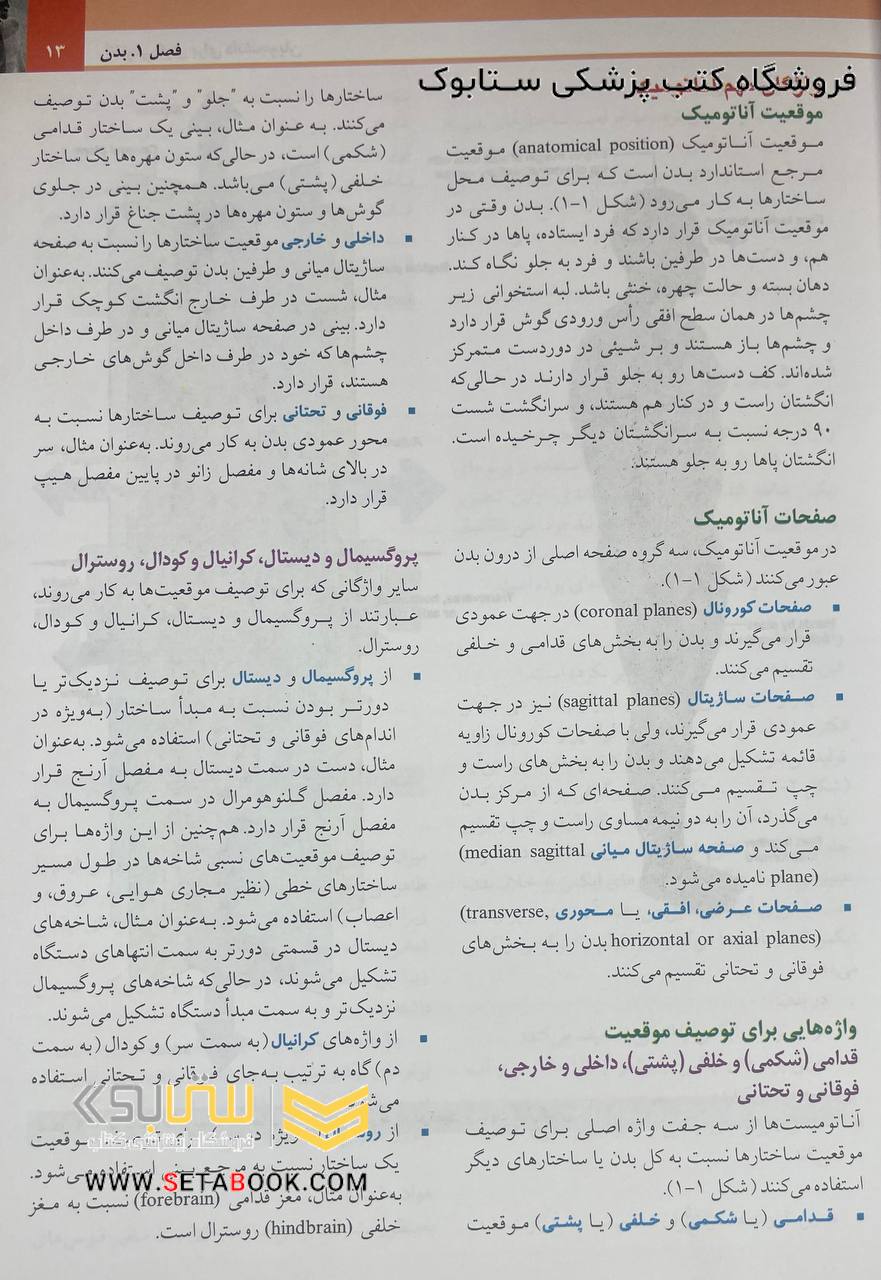 ۱۳
فصل ۱. بدن
فروشگاه کتب پزشکی ستابوک
موقعیت آناتومیک
موقعیت آناتومیک (anatomical position) موقعیت
مرجع استاندارد بدن است که برای توصیف محل
ساختارها به کار می‌رود (شکل ۱-۱). بدن وقتی در
موقعیت آناتومیک قرار دارد که فرد ایستاده، پاها در کنار
هم، و دست‌ها در طرفین باشند و فرد به جلو نگاه کند.
دهان بسته و حالت چهره، خنثی باشد. لبه استخوانی زیر
چشم‌ها در همان سطح افقی رأس ورودی گوش قرار دارد
و چشم‌ها باز هستند و بر شیئی در دوردست متمرکز
شده‌اند. کف دست‌ها رو به جلو قرار دارند در حالی‌که
انگشتان راست و در کنار هم هستند، و سرانگشت شست
۹۰ درجه نسبت به سرانگشتان دیگر چرخیده است.
انگشتان پاها رو به جلو هستند.
صفحات آناتومیک
در موقعیت آناتومیک، سه گروه صفحه اصلی از درون بدن
عبور می‌کنند (شکل ۱-۱).
■ صفحات کورونال (coronal planes) در جهت عمودی
قرار می‌گیرند و بدن را به بخش‌های قدامی و خلفی
تقسیم می‌کنند.
■ صفحات ساژیتال (sagittal planes) نیز در جهت
عمودی قرار می‌گیرند، ولی با صفحات کورونال زاویه
قائمه تشکیل می‌دهند و بدن را به بخش‌های راست و
چپ تقسیم می‌کنند. صفحه‌ای که از مرکز بدن
می‌گذرد، آن را به دو نیمه مساوی راست و چپ تقسیم
می‌کند و صفحه ساژیتال میانی (median sagittal
plane) نامیده می‌شود.
■ صفحات عرضی، افقی، یا محوری (transverse,
horizontal or axial planes) بدن را به بخش‌های
فوقانی و تحتانی تقسیم می‌کنند.
واژه‌هایی برای توصیف موقعیت
قدامی (شکمی) و خلفی (پشتی)، داخلی و خارجی،
فوقانی و تحتانی
آناتومیست‌ها از سه جفت واژه اصلی برای توصیف
موقعیت ساختارها نسبت به کل بدن یا ساختارهای دیگر
استفاده می‌کنند (شکل ۱-۱).
■ قدامی (یا شکمی) و خلفی (یا پشتی) موقعیت
ساختارها را نسبت به "جلو" و "پشت" بدن توصیف
می‌کنند. به عنوان مثال، بینی یک ساختار قدامی
(شکمی) است، در حالی‌که ستون مهره‌ها یک ساختار
خلفی (پشتی) می‌باشد. همچنین بینی در جلوی
گوش‌ها و ستون مهره‌ها در پشت جناغ قرار دارد.
■ داخلی و خارجی موقعیت ساختارها را نسبت به صفحه
ساژیتال میانی و طرفین بدن توصیف می‌کنند. به‌عنوان
مثال، شست در طرف خارج انگشت کوچک قرار
دارد. بینی در صفحه ساژیتال میانی و در طرف داخل
چشم‌ها که خود در طرف داخل گوش‌های خارجی
هستند، قرار دارد.
■ فوقانی و تحتانی برای توصیف ساختارها نسبت به
محور عمودی بدن به کار می‌روند. به‌عنوان مثال، سر
در بالای شانه‌ها و مفصل زانو در پایین مفصل هیپ
قرار دارد.
پروگسیمال و دیستال، کرانیال و کودال، روسترال
سایر واژگانی که برای توصیف موقعیت‌ها به کار می‌روند،
عبارتند از پروگسیمال و دیستال، کرانیال و کودال،
روسترال.
■ از پروگسیمال و دیستال برای توصیف نزدیک‌تر یا
دورتر بودن نسبت به مبدأ ساختار (به‌ویژه در
اندام‌های فوقانی و تحتانی) استفاده می‌شود. به‌عنوان
مثال، دست در سمت دیستال به مفصل آرنج قرار
دارد. مفصل گلنوهومرال در سمت پروگسیمال به
مفصل آرنج قرار دارد. هم‌چنین از این واژه‌ها برای
توصیف موقعیت‌های نسبی شاخه‌ها در طول مسیر
ساختارهای خطی (نظیر مجاری هوایی، عروق، و
اعصاب) استفاده می‌شود. به‌عنوان مثال، شاخه‌های
دیستال در قسمتی دورتر به سمت انتهاهای دستگاه
تشکیل می‌شوند، در حالی‌که شاخه‌های پروگسیمال
نزدیک‌تر و به سمت مبدأ دستگاه تشکیل می‌شوند.
■ از واژه‌های کرانیال (به سمت سر) و کودال (به سمت
دم) گاه به ترتیب به‌جای فوقانی و تحتانی استفاده
■ از
موقعیت
یک ساختار نسبت به مرجع بینی استفاده می‌شود.
به‌عنوان مثال، مغز قدامی (forebrain) نسبت به مغز
خلفی (hindbrain) روسترال است.
ستابوک
فروشگاه اینترنتی کتاب
WWW.SETABOOK.COM